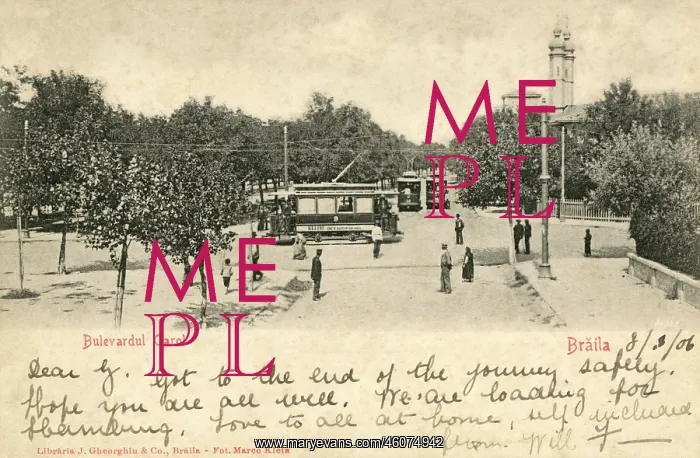 ME
PL
ME
PL
Bulevardul Carol
Brăila 8/3/06
Dear G. Got to the end of the journey safely.
Hope you are all well. We are loading for
Hamburg. Love to all at home, self included
from Will
Librăria J. Gheorghiu & Co., Brăila - Fot. Marco Klein
www.maryevans.com/46074942